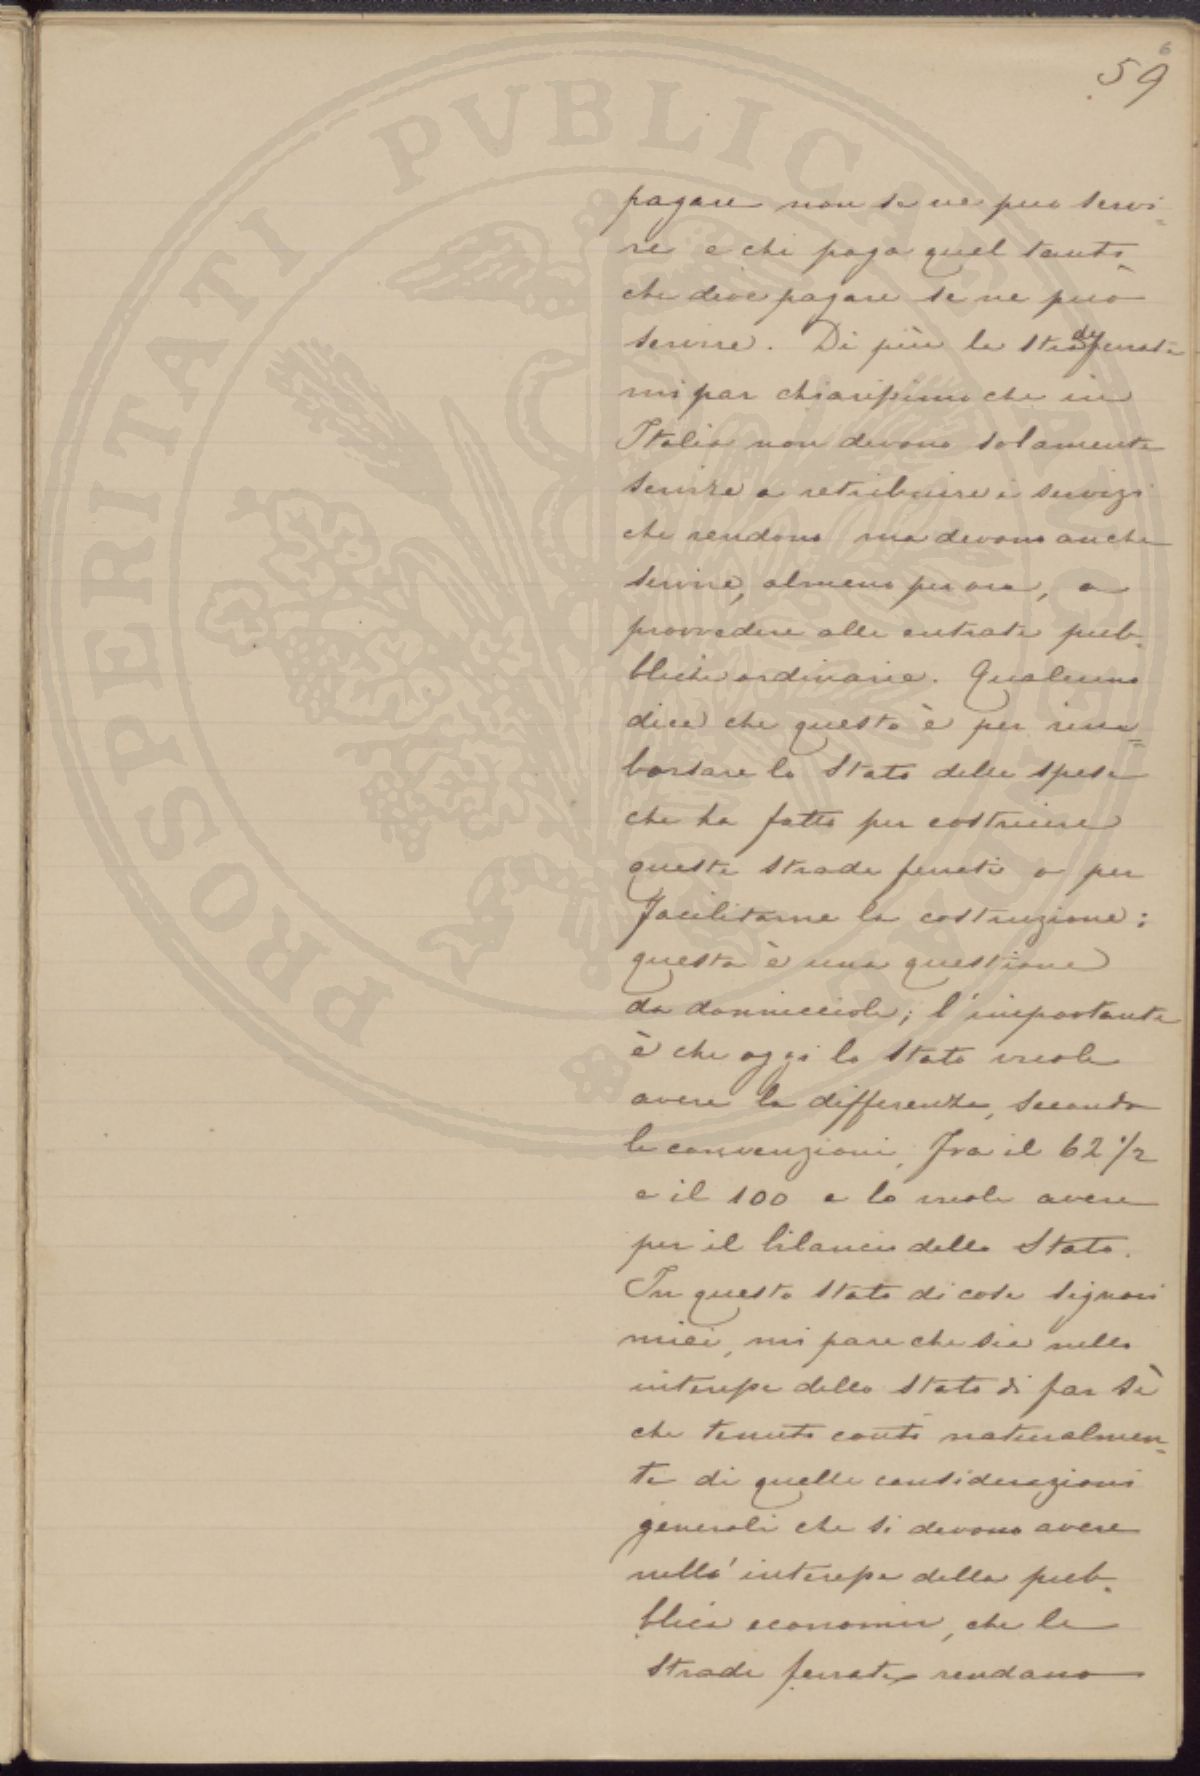 6
59
pagare non se ne può servi=
re e chi paga quel tanto
che deve pagare se ne può
servire. Di più le strade ferrate
mi par chiarissimo che in
Italia non devono solamente
servire a retribuire i servizi
che rendono ma devono anche
servire, almeno per ora, a
provvedere alle entrate pub=
bliche ordinarie. Qualcuno
dice che questo è per rim=
borsare lo Stato delle spese
che ha fatto per costruire
queste strade ferrate o per
facilitarne la costruzione;
questa è una questione
da donnicciole; l'importante
è che oggi lo Stato vuole
avere la differenza, secondo
le convenzioni, fra il 62 1/2
e il 100 e lo vuole avere
per il bilancio dello Stato.
In questo stato di cose signori
miei, mi pare che sia nello
interesse dello Stato di far sì
che tenuto conto naturalmen=
te di quelle considerazioni
generali che si devono avere
nello interesse della pub=
blica economia, che le
strade ferrate rendano
PROSPERITATI PVBLICAE AVGENDAE